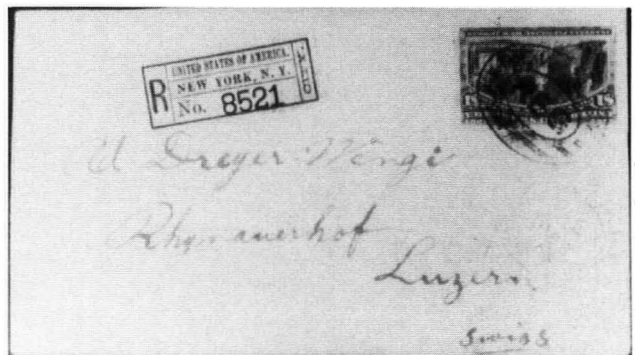 UNITED STATES OF AMERICA.
R NEW YORK, N. Y.
No. 8521
U Dreyer-Wengi
Rhynauerhof
Luzern
Swiss